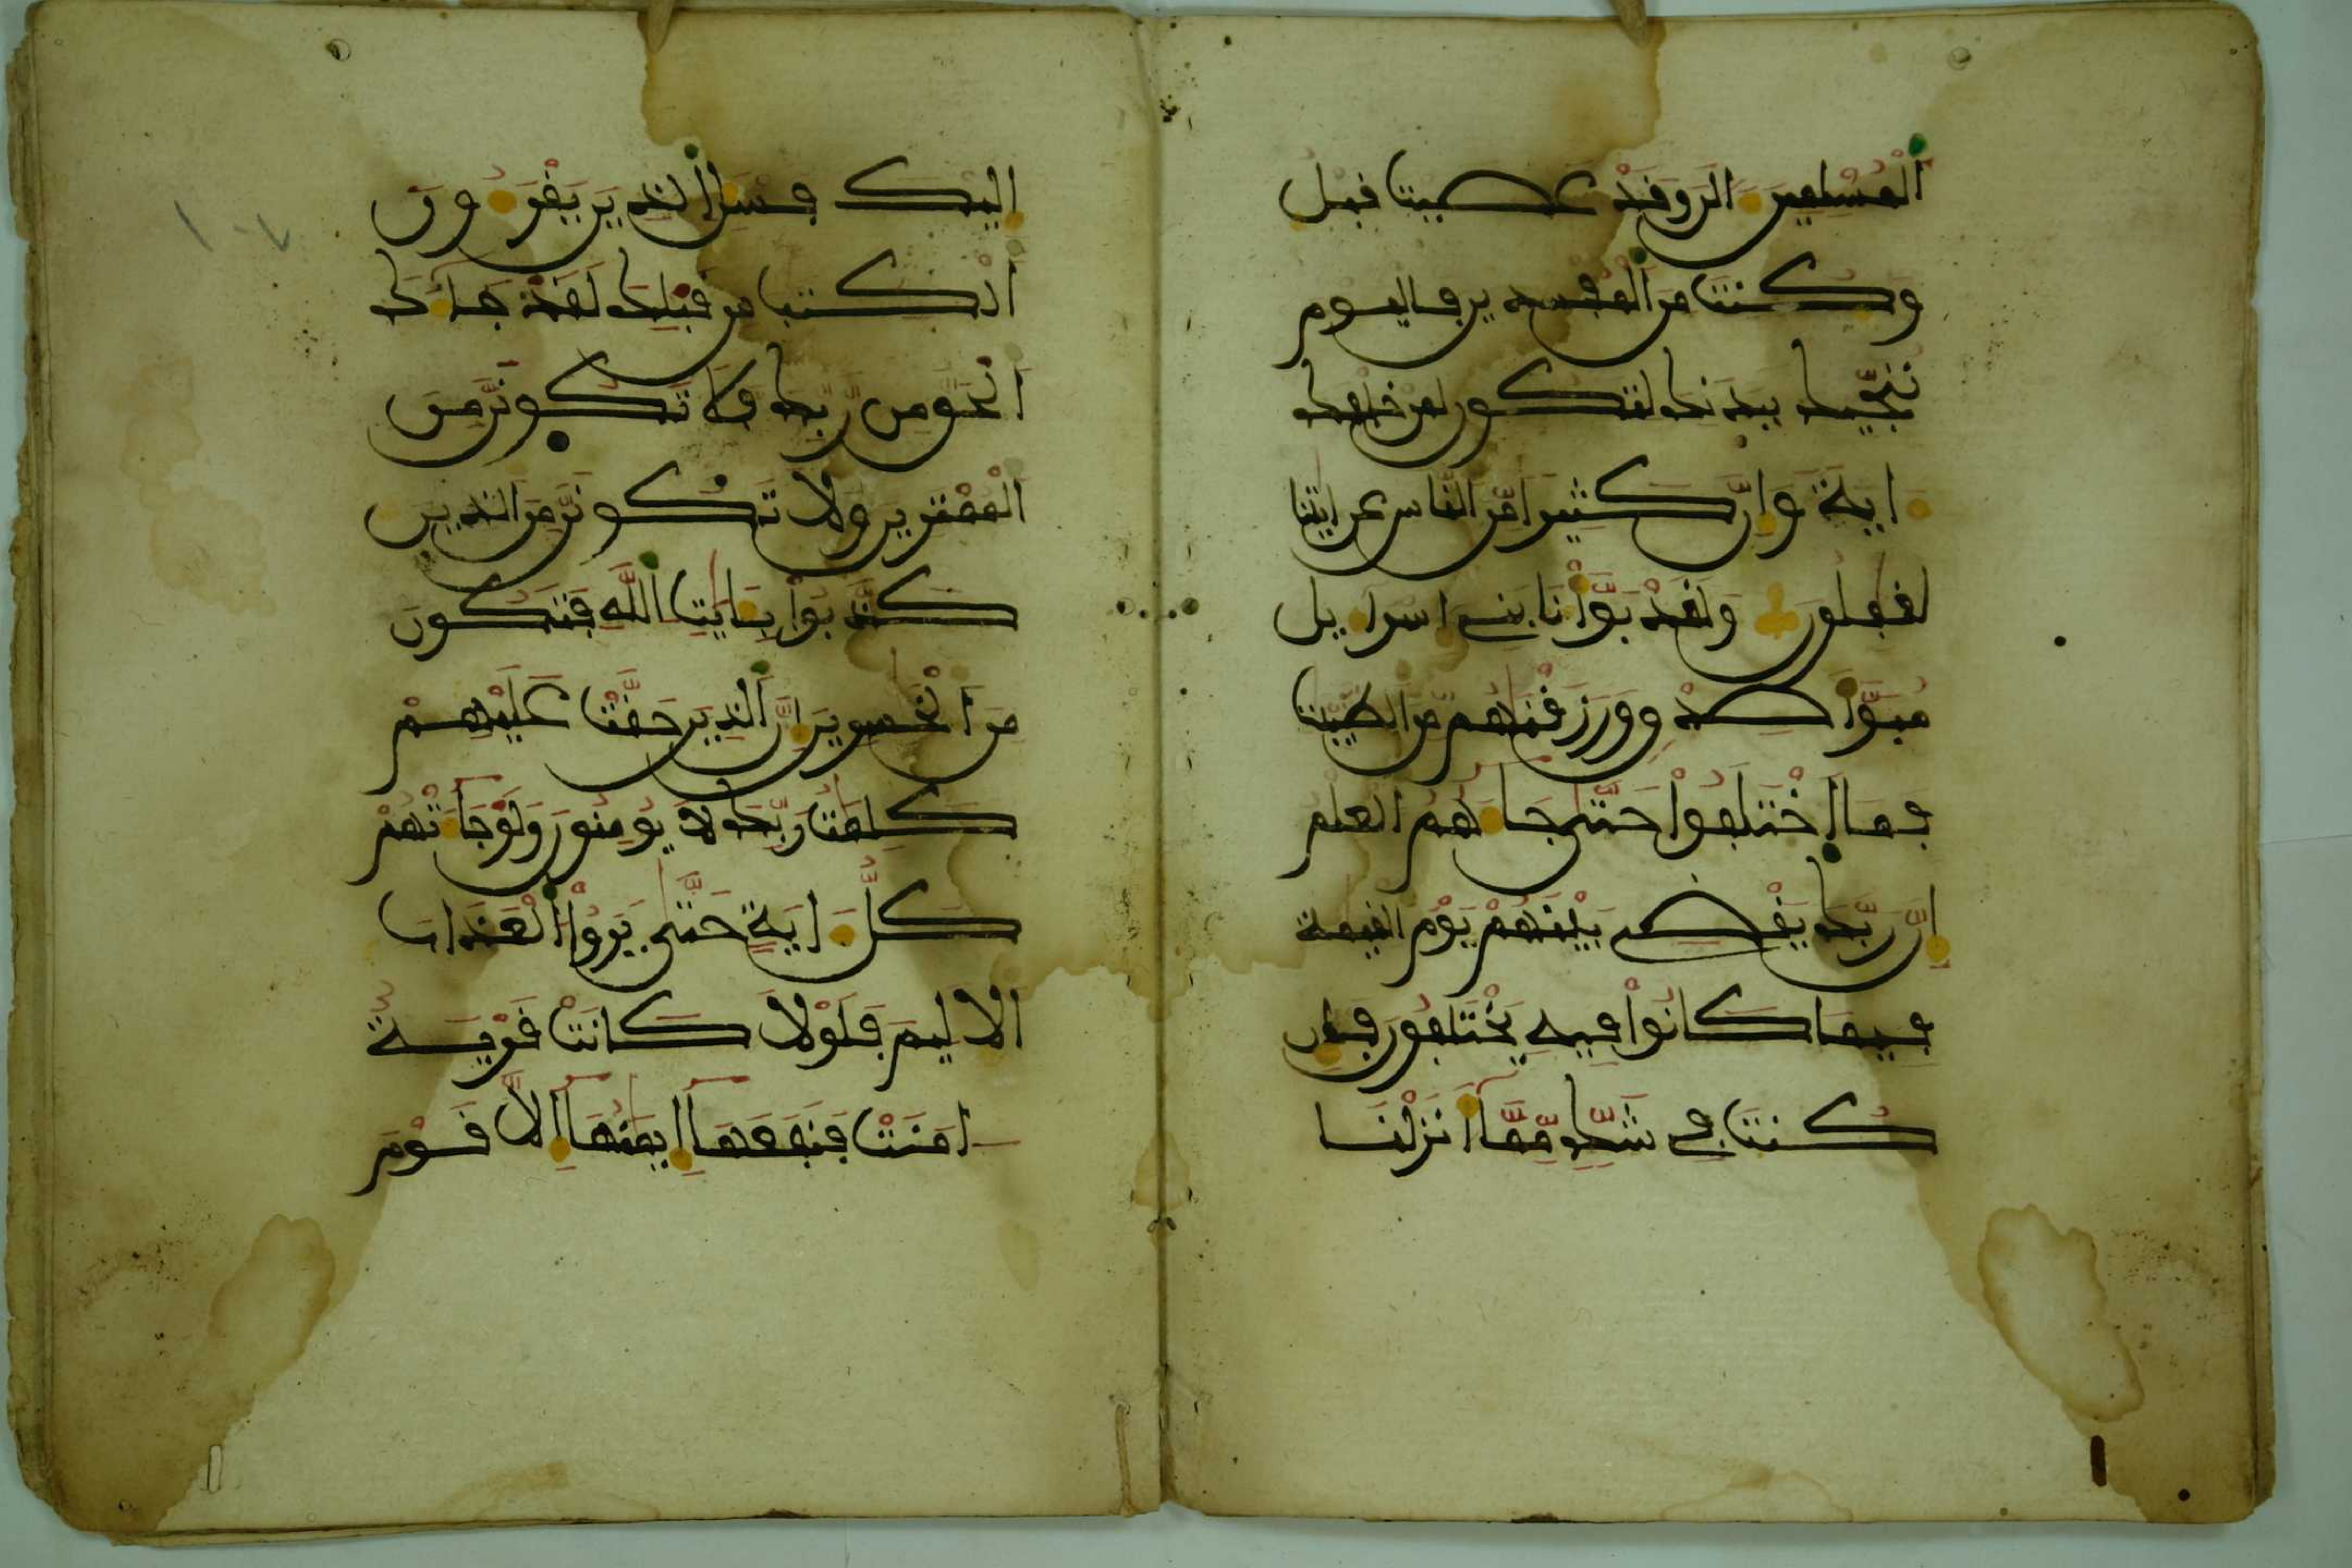 الْمُسْلِمِينَ ءالَن وَقَدْ عَصَيْتَ قَبْلُ
وَكُنتَ مِنَ الْمُفْسِدِينَ فَالْيَوْمَ
نُنَجِّيكَ بِبَدَنِكَ لِتَكُونَ لِمَنْ خَلْفَكَ
ءايَةً وَإِنَّ كَثِيرًا مِّنَ النَّاسِ عَنَ ايَٰتِنَا
لَغَٰفِلُونَ وَلَقَدْ بَوَّأْنَا بَنِي إِسْرَاءِيلَ
مُبَوَّأَ صِدْقٍ وَرَزَقْنَٰهُم مِّنَ الطَّيِّبَٰتِ
فَمَا اخْتَلَفُواْ حَتَّىٰ جَاءَهُمُ الْعِلْمُ
إِنَّ رَبَّكَ يَقْضِي بَيْنَهُمْ يَوْمَ الْقِيَٰمَةِ
فِيمَا كَانُواْ فِيهِ يَخْتَلِفُونَ فَإِن
كُنتَ فِي شَكٍّ مِّمَّا أَنزَلْنَا
إِلَيْكَ فَسْـَٔلِ الَّذِينَ يَقْرَءُونَ
الْكِتَٰبَ مِن قَبْلِكَ لَقَدْ جَاءَكَ
الْحَقُّ مِن رَّبِّكَ فَلَا تَكُونَنَّ مِنَ
الْمُمْتَرِينَ وَلَا تَكُونَنَّ مِنَ الَّذِينَ
كَذَّبُواْ بِـَٔايَٰتِ اللَّهِ فَتَكُونَ
مِنَ الْخَٰسِرِينَ إِنَّ الَّذِينَ حَقَّتْ عَلَيْهِمْ
كَلِمَٰتُ رَبِّكَ لَا يُومِنُونَ وَلَوْ جَاءَتْهُمْ
كُلُّ ءايَةٍ حَتَّىٰ يَرَوُاْ الْعَذَابَ
الَالِيمَ فَلَوْلَا كَانَتْ قَرْيَةٌ
ءامَنَتْ فَنَفَعَهَا إِيمَٰنُهَا إِلَّا قَوْمَ
١٠٧